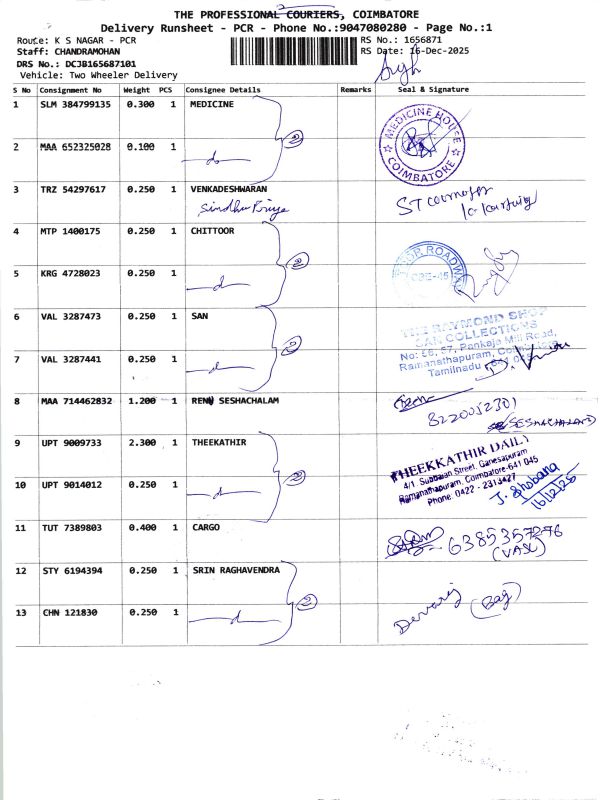 THE PROFESSIONAL COURIERS, COIMBATORE
Delivery Runsheet - PCR - Phone No.:9047080280 - Page No.:1
Route: K S NAGAR - PCR
RS No.: 1656871
Staff: CHANDRAMOHAN
RS Date: 16-Dec-2025
DRS No.: DCJB165687101
Vehicle: Two Wheeler Delivery
S No Consignment No Weight PCS Consignee Details Remarks Seal & Signature
1 SLM 384799135 0.300 1 MEDICINE
MEDICINE HOUSE COIMBATORE
2 MAA 652325028 0.100 1 do
2
3 TRZ 54297617 0.250 1 VENKADESHWARAN
Sindhu Priya
ST courier
4 MTP 1400175 0.250 1 CHITTOOR
5 KRG 4728023 0.250 1 do
2
6 VAL 3287473 0.250 1 SAN
THE RAYMOND SHOP
SAN COLLECTIONS
No: 56, 57, Pankaja Mill Road,
Ramanathapuram, Coimbatore
Tamilnadu
7 VAL 3287441 0.250 1 do
2
8 MAA 714462832 1.200 1 RENU SESHACHALAM
8220052301
SESHACHALAM
9 UPT 9009733 2.300 1 THEEKATHIR
THEEKKATHIR DAILY
4/1, Subbaian Street, Ganesapuram
Ramanathapuram, Coimbatore-641 045
Phone: 0422 - 2313427
10 UPT 9014012 0.250 1 do
2
J. Shobana
16/12/25
11 TUT 7389803 0.400 1 CARGO
6385357276
(VASL)
12 STY 6194394 0.250 1 SRIN RAGHAVENDRA
13 CHN 121830 0.250 1 do
2
Devaraj (Bag)